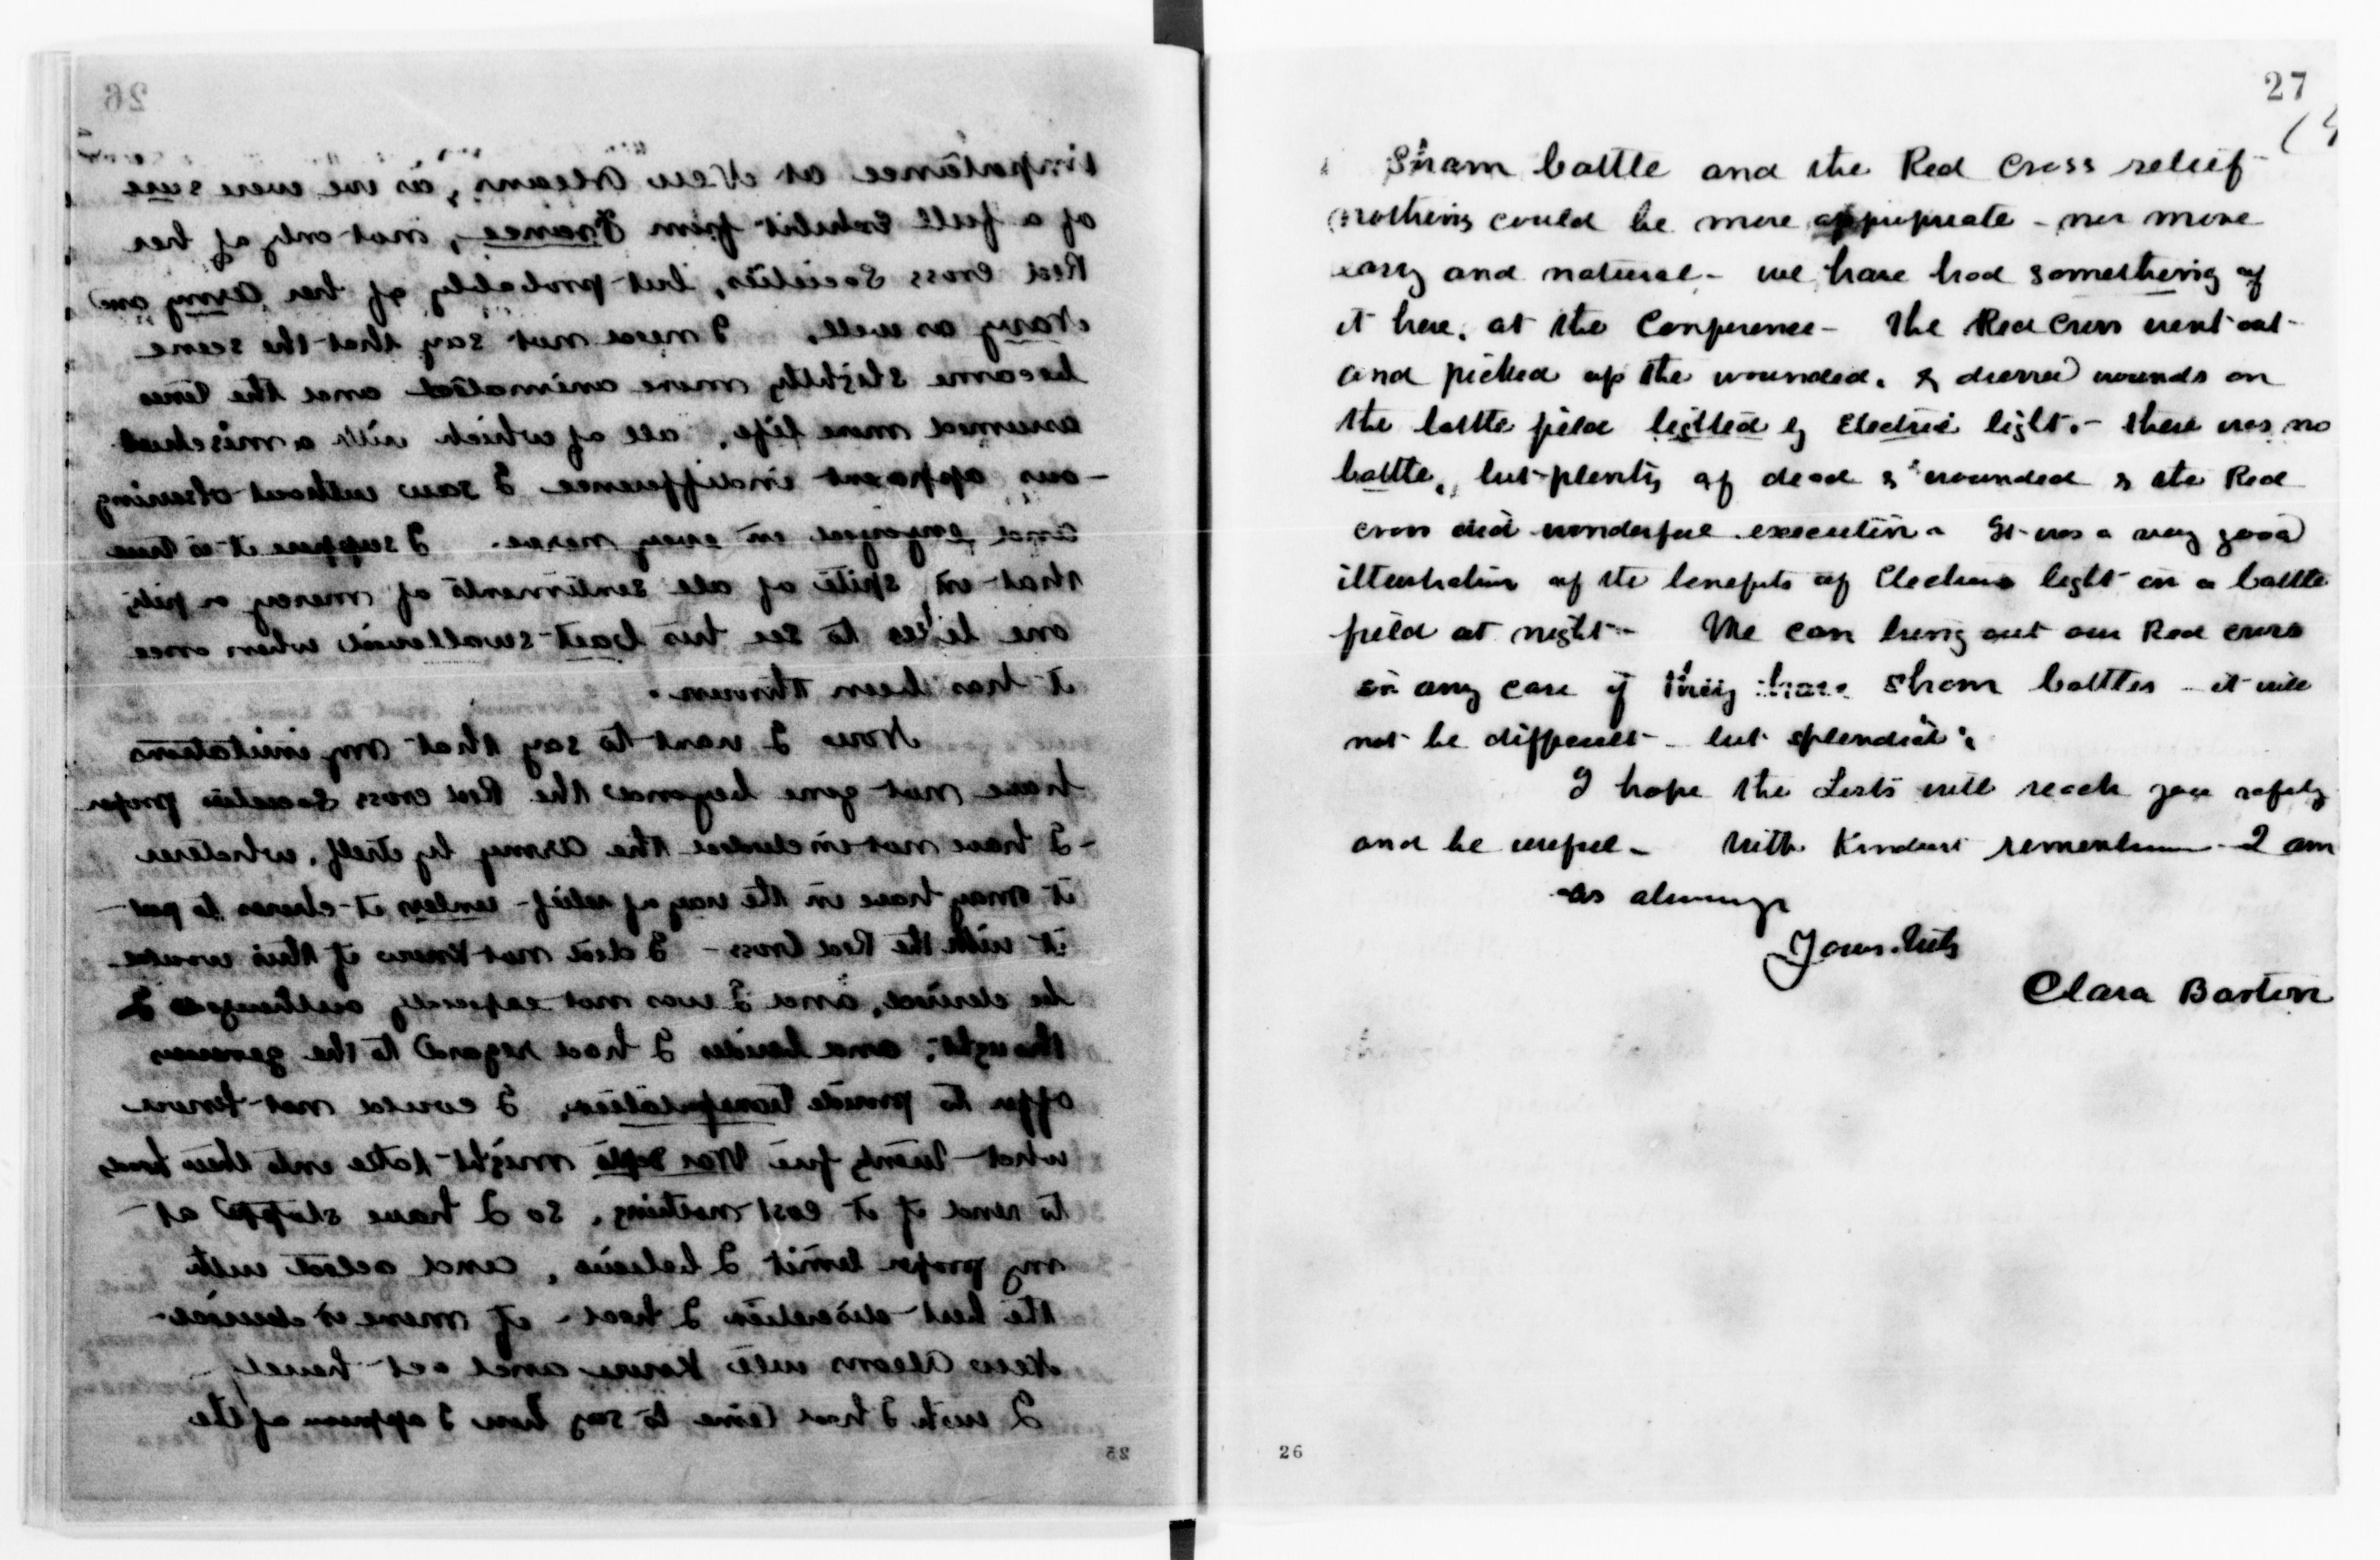 26
importance at New Orleans, as we were sure
of a full exhibit from France, not only of her
Red Cross Societies, but probably of her Army and
Navy as well. I need not say that the scene
became slightly more animated and the lines
assumed more life, all of which with a mischiev
-ous apparent indifference I saw without observing
and enjoyed in every nerve. I suppose it is true
that in spite of all sentiments of mercy or pity
one likes to see his bait swallowed when once
it has been thrown.
Now I want to say that my invitations
have not gone beyond the Red Cross Societies proper
- I have not included the Army by itself, whatever
it may have in the way of relief - unless it chooses to put
it with the Red Cross - I did not know if this would
be desired, and I was not expressly authorized I
thought, and besides I had regard to the generous
offer to provide transportation, I could not know
what twenty five War depts might take into their heads
to send if it cost nothing, so I have stopped at
my proper limit I believe, and acted with
the best discretion I had - if more is desired
New Orleans will know and act herself -
I wish I had time to say how I approve of the
25
27
Sham battle and the Red Cross relief -
nothing could be more appropriate - nor more
easy and natural - we have had something of
it here, at the Conference - the Red Cross went out
and picked up the wounded, & dressed wounds on
the battle field lighted by Electric light. - there was no
battle, but plenty of dead & wounded & the Red
cross did wonderful execution - It was a very good
illustration of the benefits of Electric light on a battle
field at night - We can bring out our Red cross
in any case if they have Sham battles - it will
not be difficult - but splendid.
I hope the Lists will reach you safely
and be useful - With Kindest remembrance I am
as always
Yours truly
Clara Barton
26